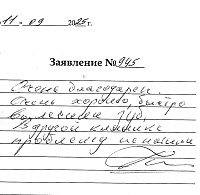 11 09 2025 г.
Заявление № 945
Очень благодарен.
Очень хорошо, быстро
вылечили зуб,
В другой клинике
проблему не нашли